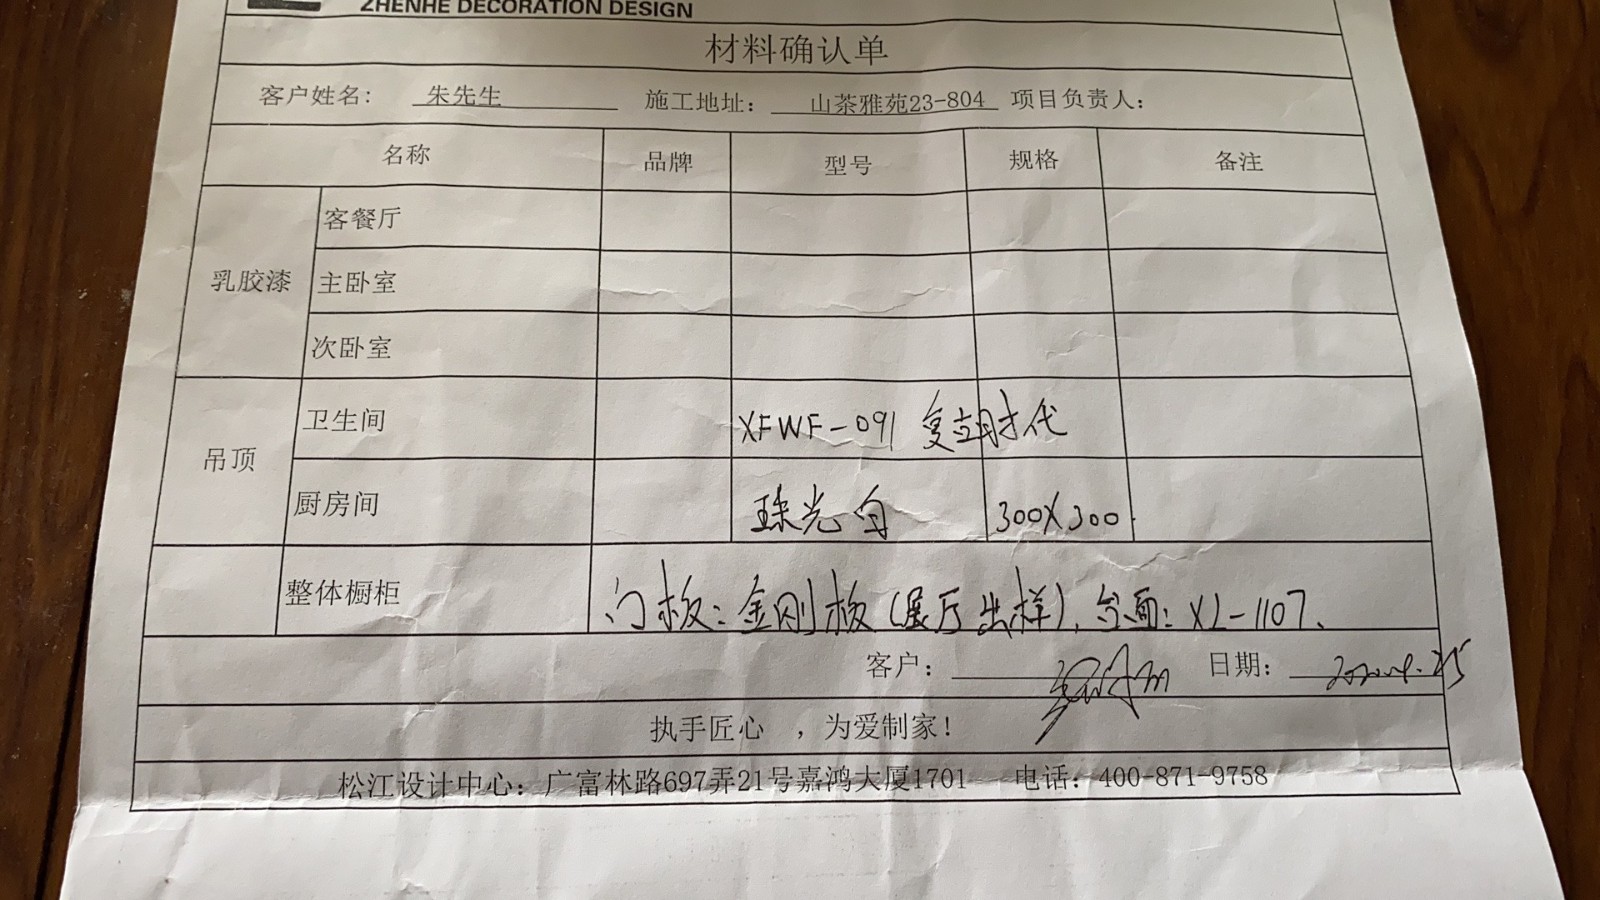 ZHENHE DECORATION DESIGN
材料确认单
客户姓名: 朱先生 施工地址: 山茶雅苑23-804 项目负责人:
名称 品牌 型号 规格 备注
乳胶漆
客餐厅
主卧室
次卧室
吊顶
卫生间 XFWF-091 时代
厨房间 珠光白 300X300
整体橱柜 门板:金刚板(展厅出样)、台面:XL-1107、
客户: 日期:
执手匠心 ,为爱制家!
松江设计中心: 广富林路697弄21号嘉鸿大厦1701 电话: 400-871-9758